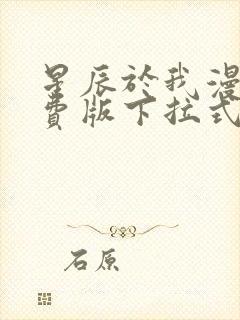 星辰於我漫
費版下拉式
石原